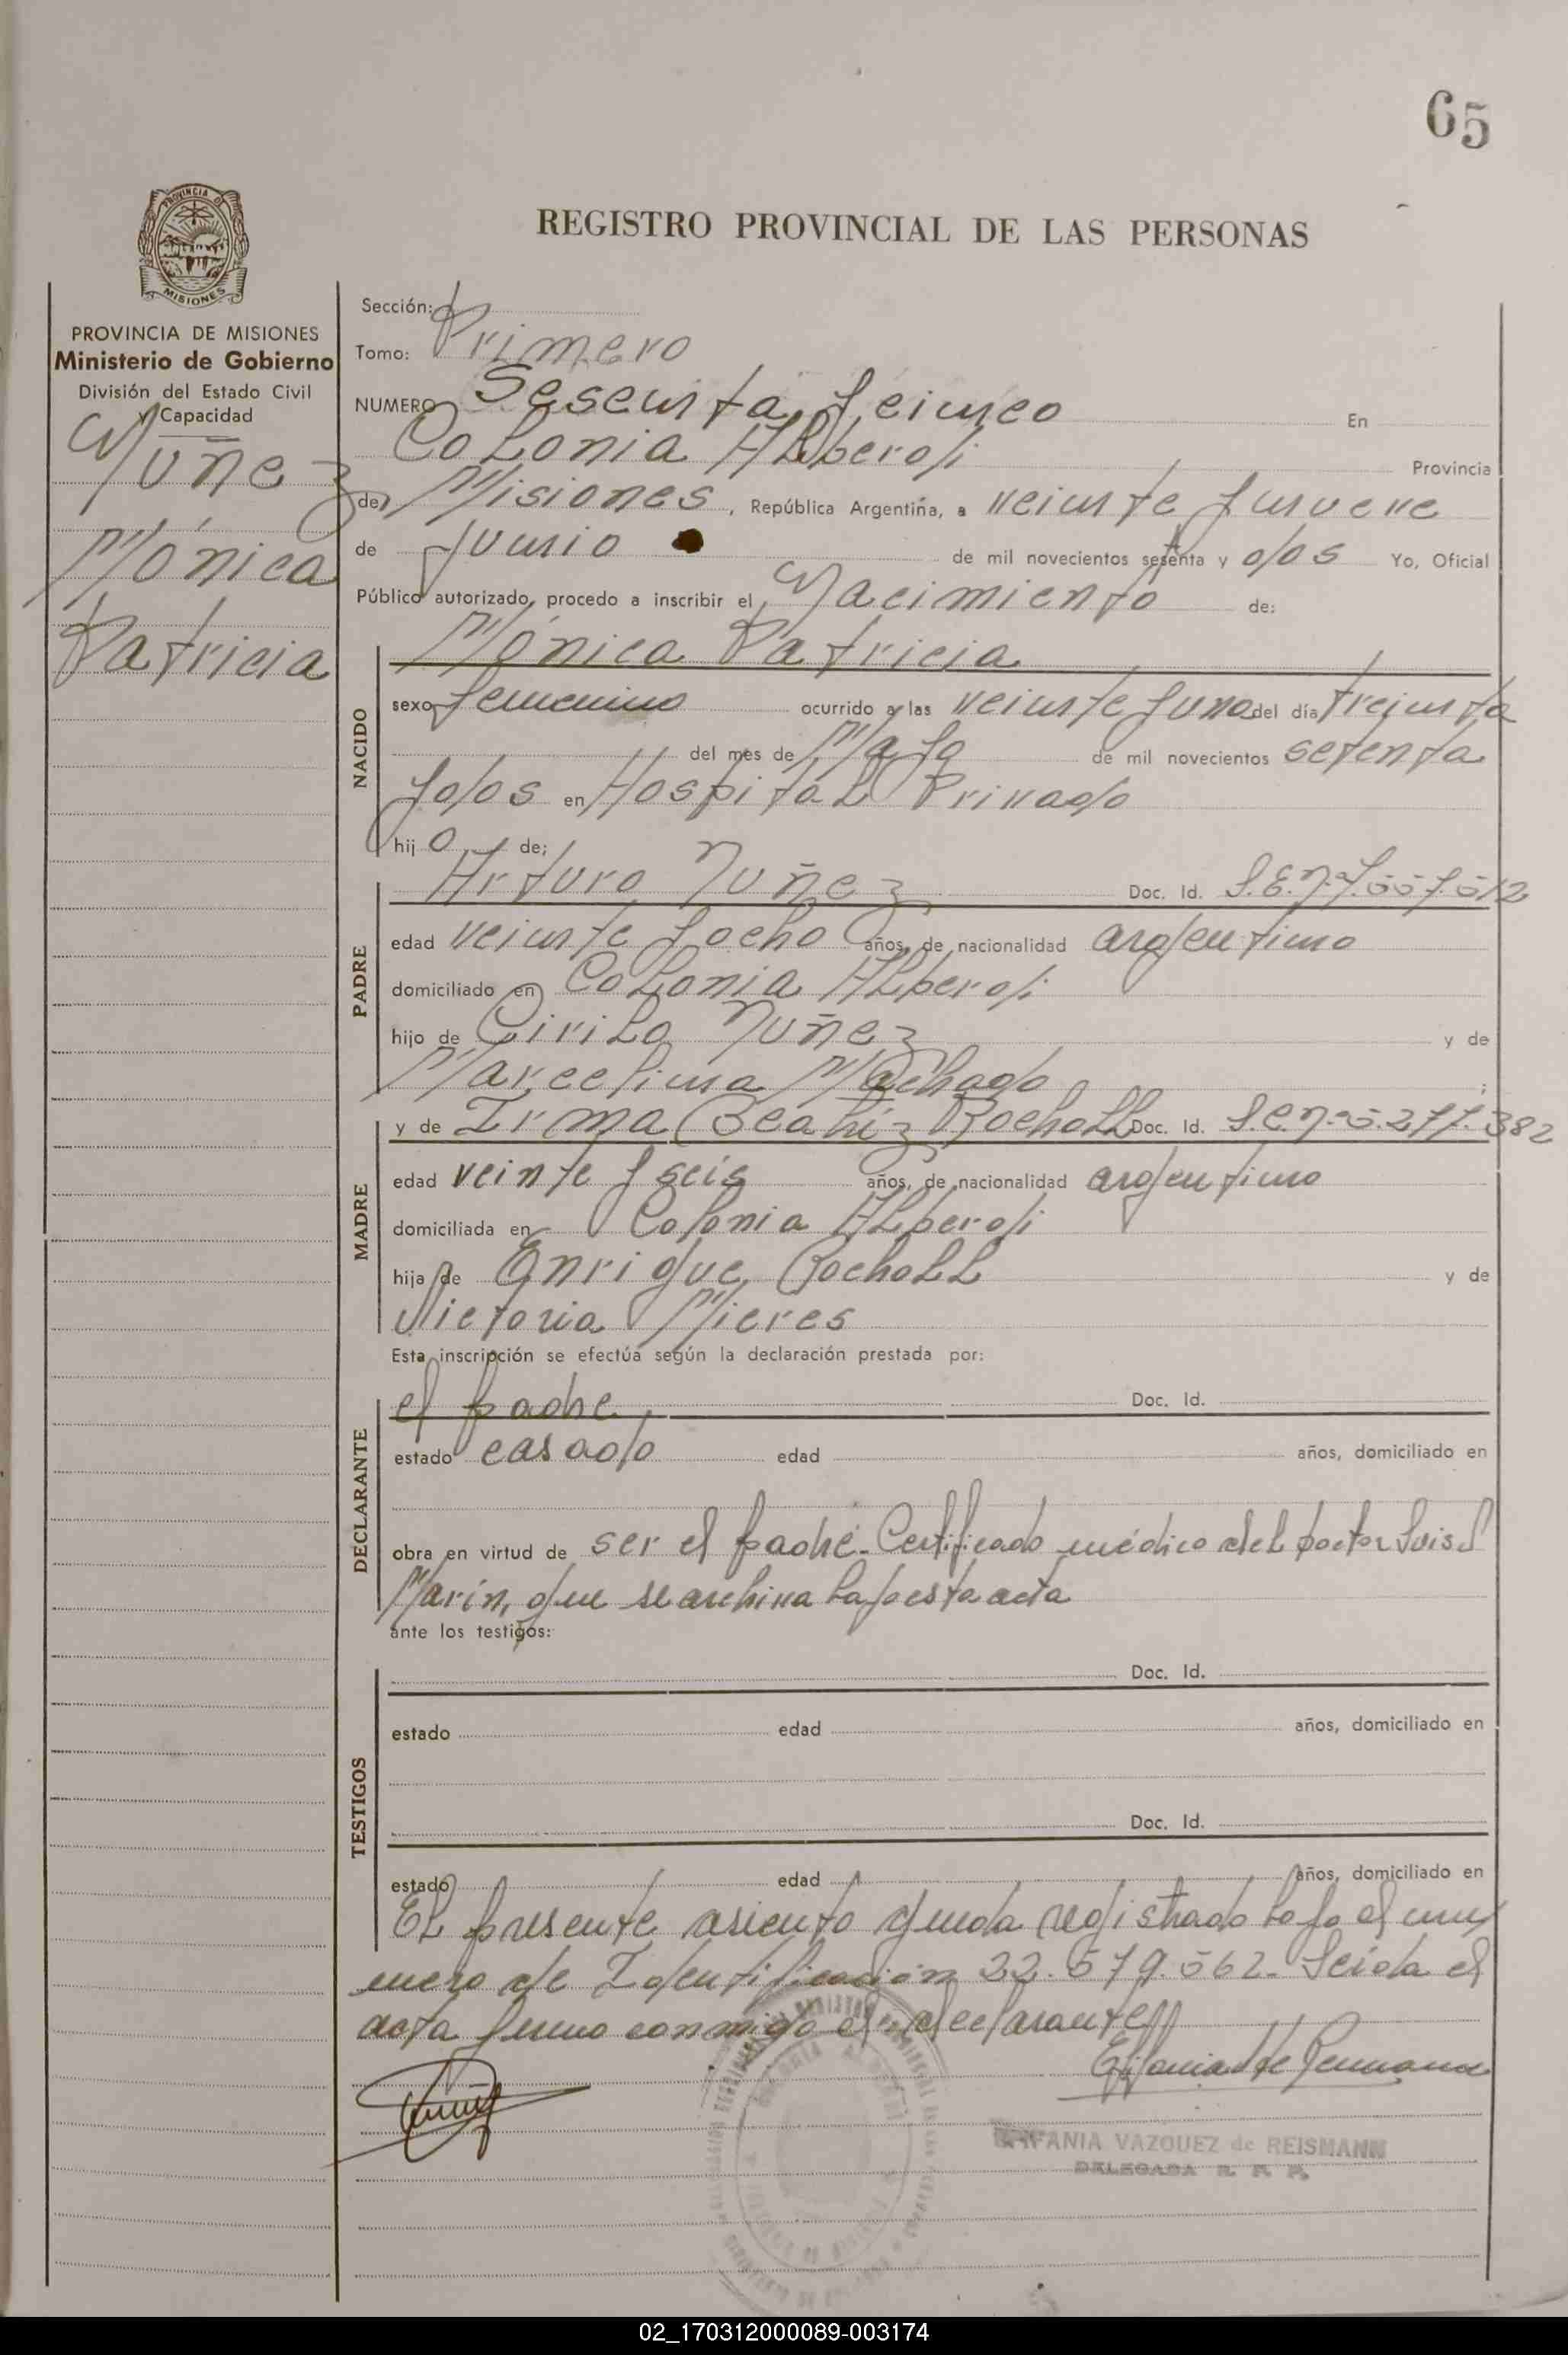 65
REGISTRO PROVINCIAL DE LAS PERSONAS
PROVINCIA DE MISIONES
MISIONES
PROVINCIA DE MISIONES
Ministerio de Gobierno
División del Estado Civil
y Capacidad
Nuñez
Mónica
Patricia
Sección:
Tomo: Primero
NUMERO Sesenta y cinco En
Colonia Alberdi Provincia
de Misiones, República Argentina, a veinte y nueve
de Junio de mil novecientos setenta y dos Yo, Oficial
Público autorizado, procedo a inscribir el Nacimiento de:
Mónica Patricia
NACIDO
sexo femenino ocurrido a las veinte y una del día treinta
del mes de Mayo de mil novecientos setenta
y dos en Hospital Privado
hij o de;
PADRE
Arturo Nuñez Doc. Id.
edad veinte y ocho años, de nacionalidad argentino
domiciliado en Colonia Alberdi
hijo de Cirilo Nuñez y de
Marcelina Machado ;
MADRE
y de Irma Beatriz Rocholl Doc. Id. 5.277.382
edad veinte y seis años, de nacionalidad argentino
domiciliada en Colonia Alberdi
hija de Enrique Rocholl y de
Victoria Mieres
Esta inscripción se efectúa según la declaración prestada por:
DECLARANTE
el padre Doc. Id.
estado casado edad años, domiciliado en
obra en virtud de ser el padre. Certificado médico del Doctor Luis
Marín, que se archiva bajo esta acta
ante los testigos:
TESTIGOS
Doc. Id.
estado edad años, domiciliado en
Doc. Id.
estado edad años, domiciliado en
El presente asiento queda registrado bajo el nu
mero de Identificación 22.579.562. Leida el
acta firmo conmigo el declarante
Epifania de Reismann
EPIFANIA VAZQUEZ de REISMANN
DELEGADA R. P. P.
02_170312000089-003174